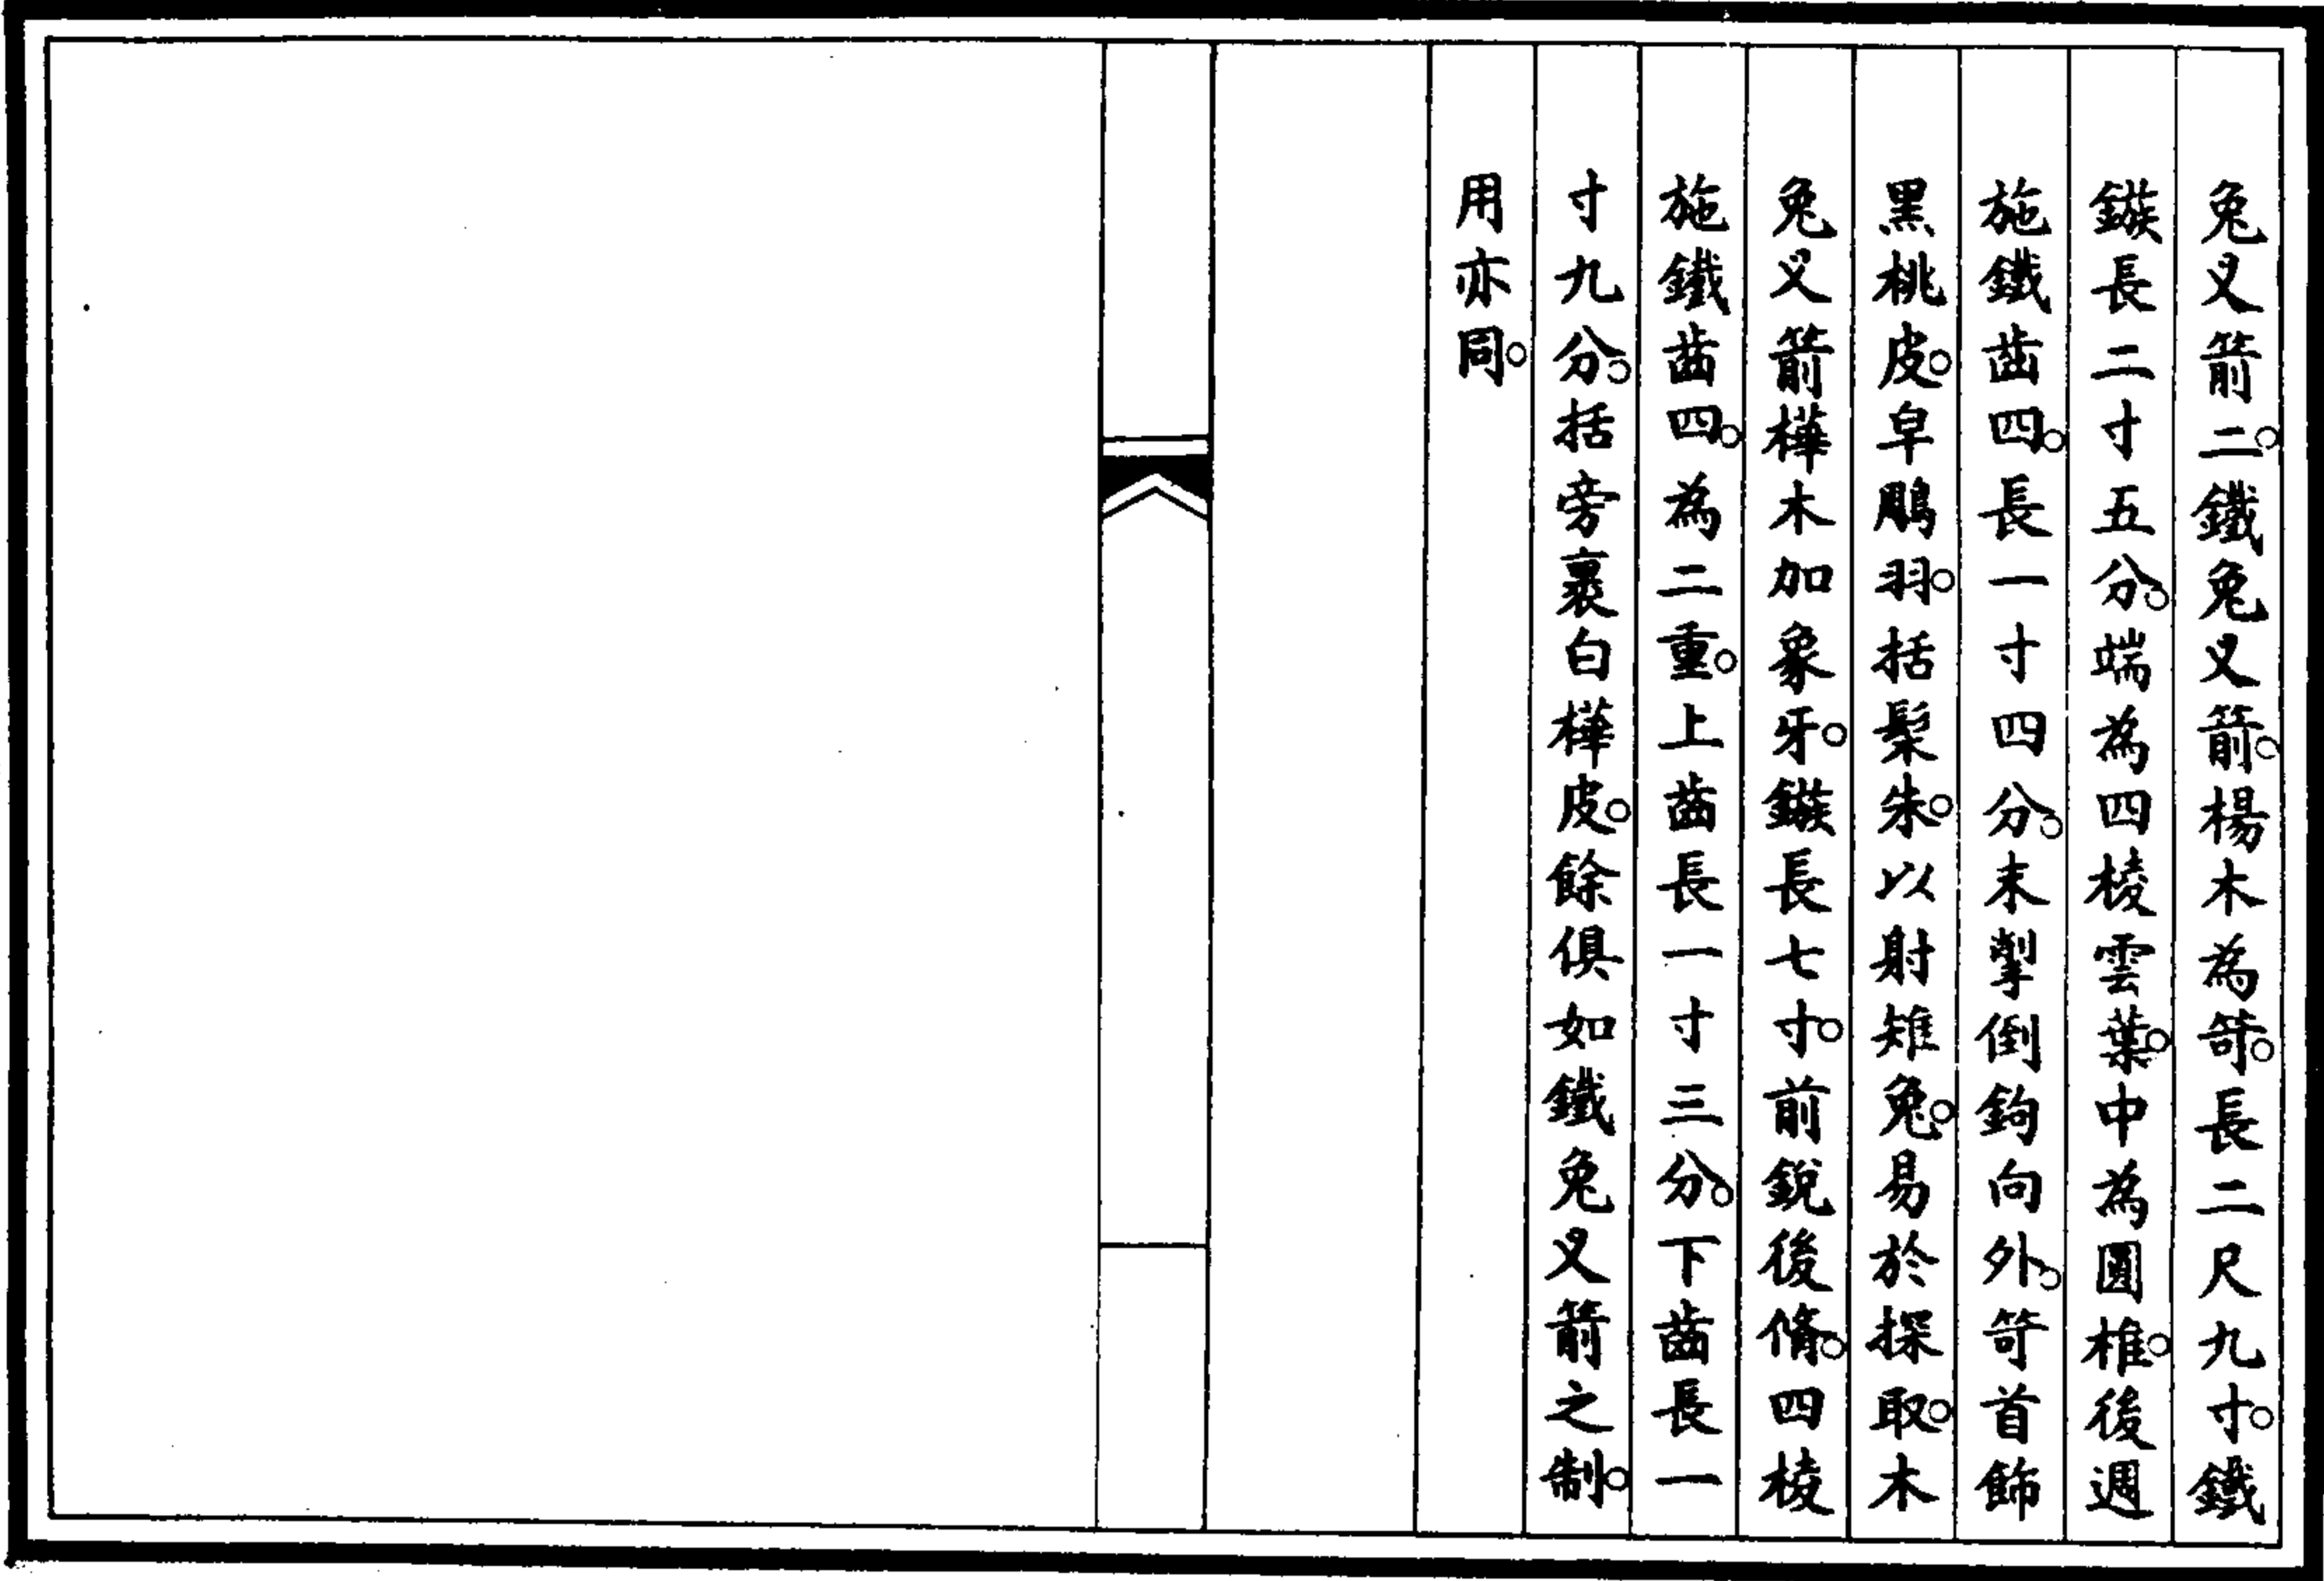 兔叉箭二。鐵兔叉箭。楊木為笴。長二尺九寸。鐵
鏃長二寸五分。端為四棱雲葉。中為圓椎。後週
施鐵齒四。長一寸四分。末掣倒鉤向外。笴首飾
黑桃皮。皁鵰羽。括髹朱。以射雉兔。易於探取。木
兔叉箭樺木加象牙。鏃長七寸。前銳後脩。四棱
施鐵齒四。為二重。上齒長一寸三分。下齒長一
寸九分。括旁裹白樺皮。餘俱如鐵兔叉箭之制。
用亦同。